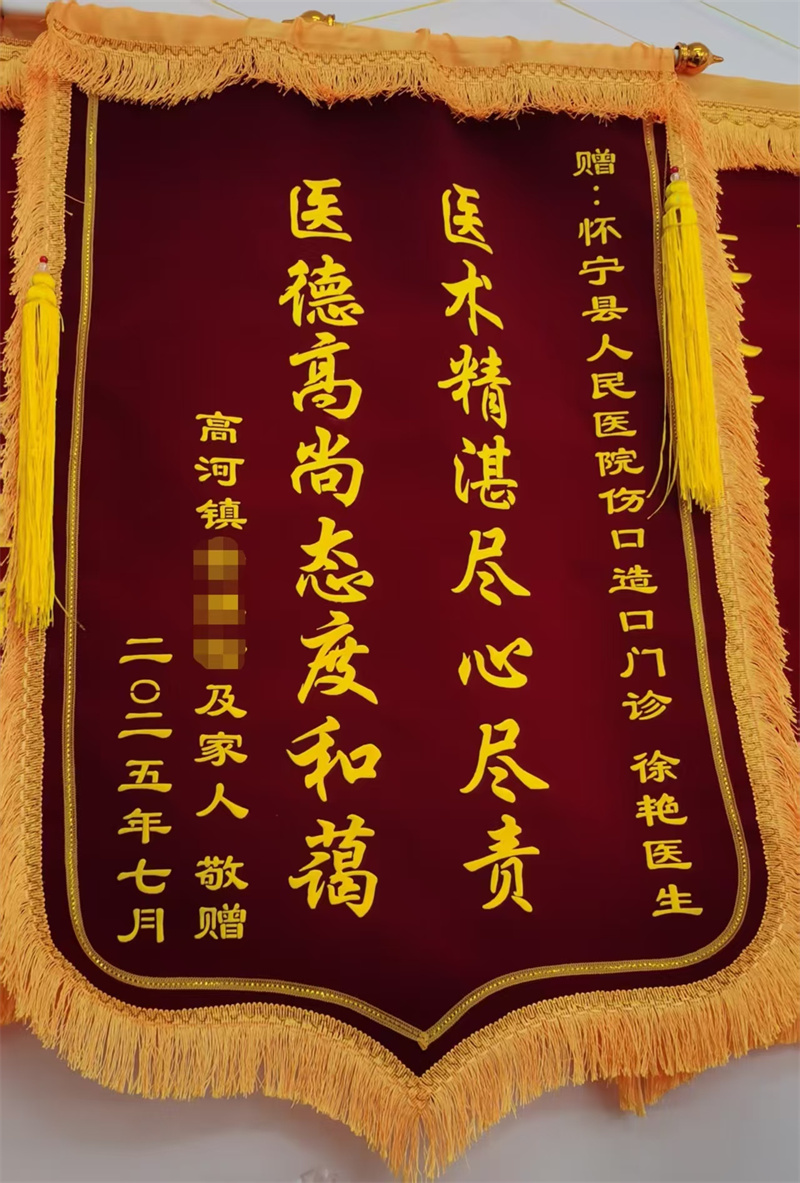 赠：怀宁县人民医院伤口造口门诊 徐艳医生
医术精湛尽心尽责
医德高尚态度和蔼
高河镇 及家人 敬赠
二〇二五年七月